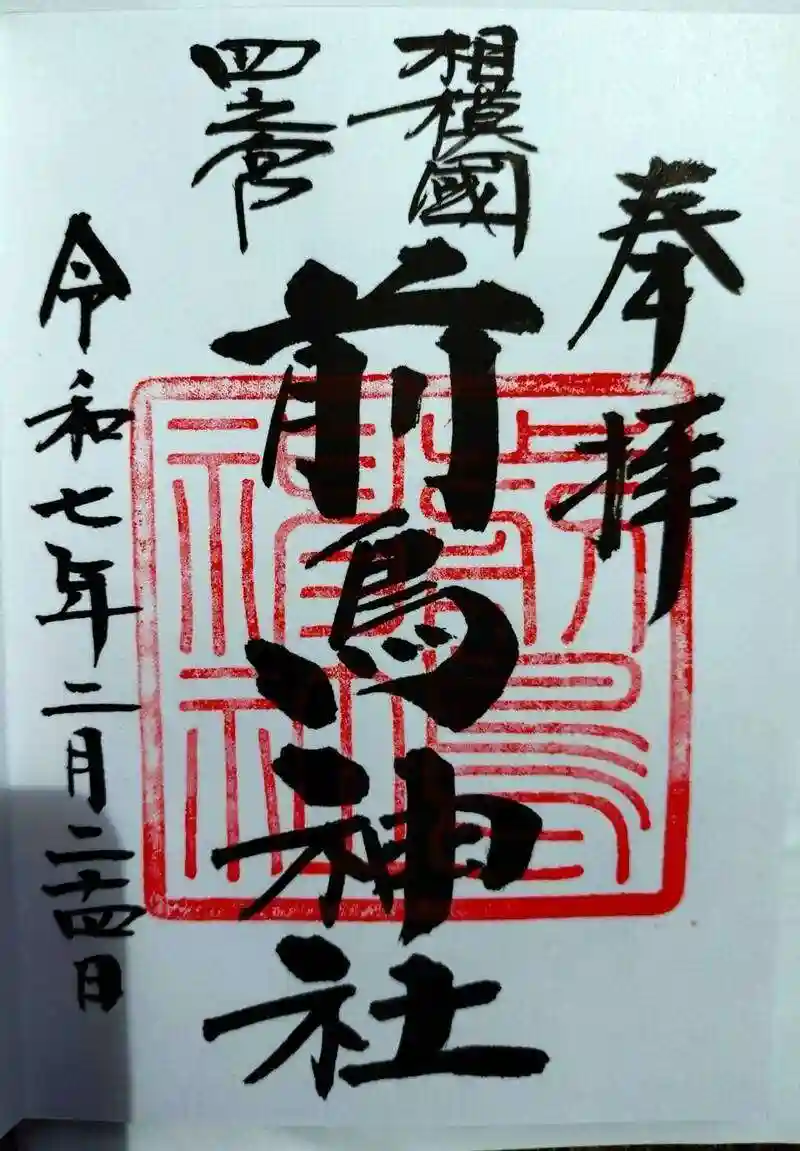 奉拝
相模國
四之宮
前鳥神社
令和七年二月二十四日
前鳥神社